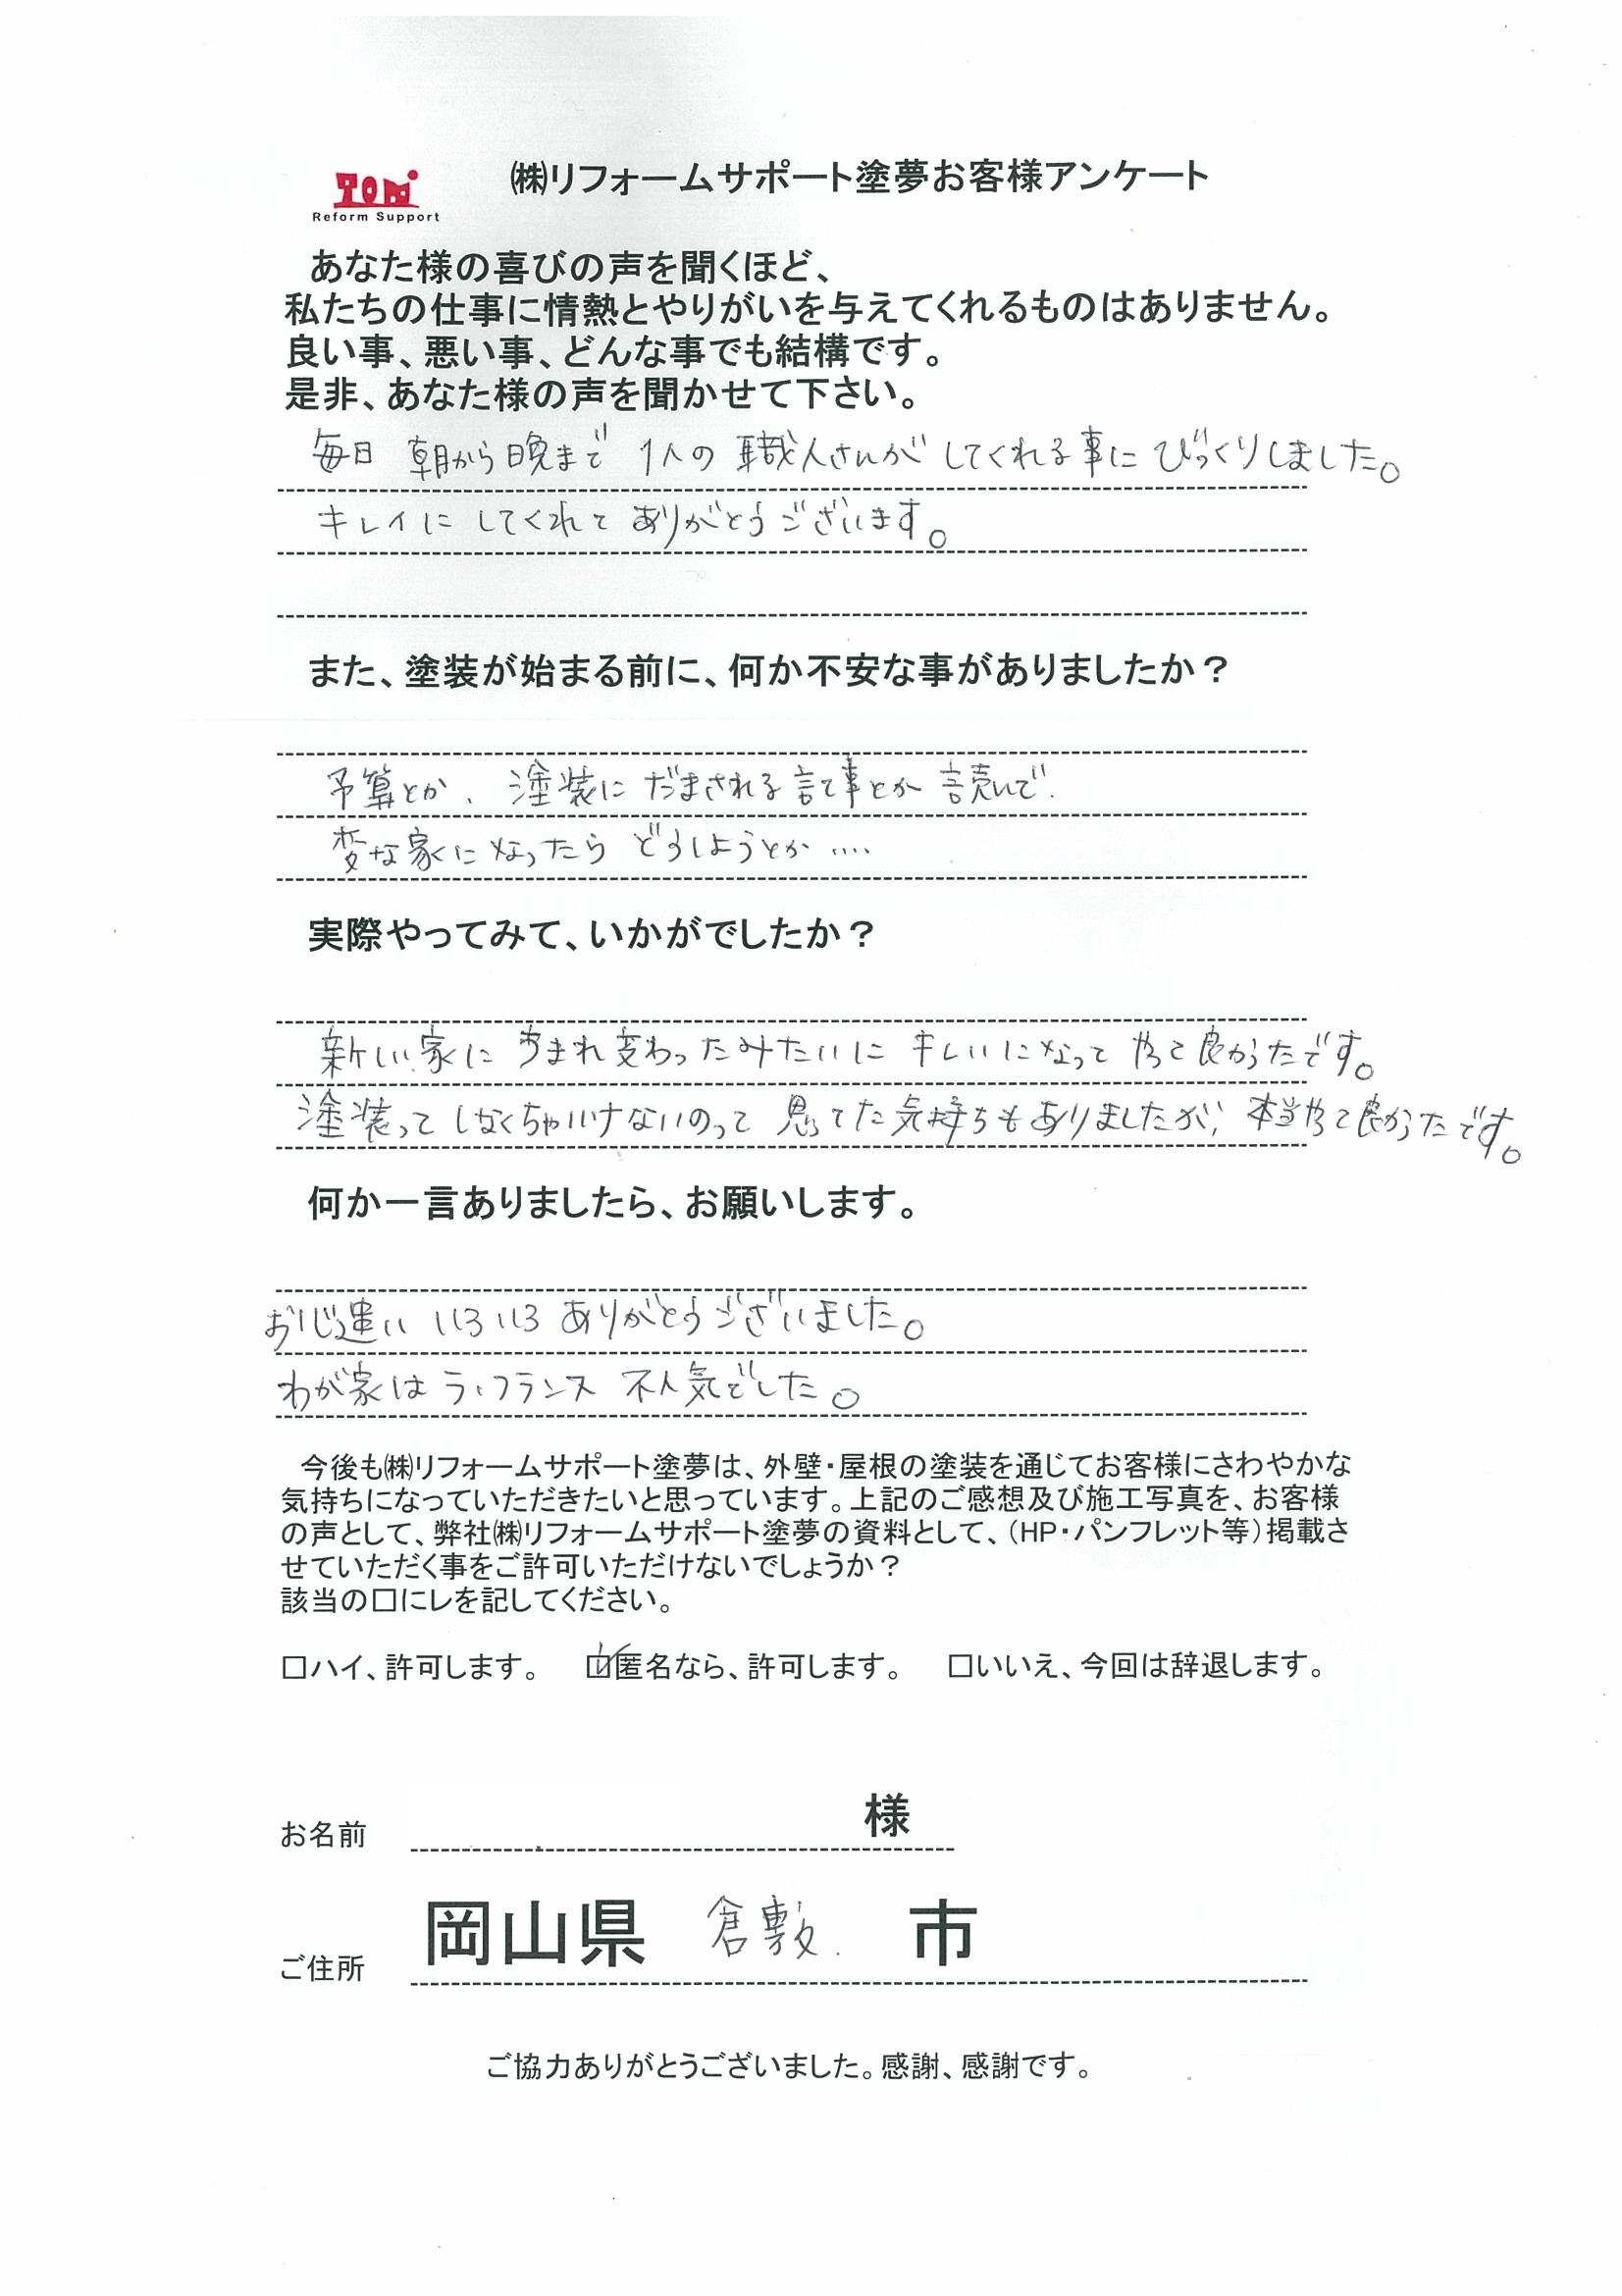 TOM
Reform Support
㈱リフォームサポート塗夢お客様アンケート
あなた様の喜びの声を聞くほど、
私たちの仕事に情熱とやりがいを与えてくれるものはありません。
良い事、悪い事、どんな事でも結構です。
是非、あなた様の声を聞かせて下さい。
毎日 朝から晩まで 1人の 職人さんが してくれる事に びっくりしました。
キレイに してくれて ありがとうございます。
また、塗装が始まる前に、何か不安な事がありましたか？
予算とか、塗装に だまされる 記事とか 読んで
変な家に なったら どうしようとか‥‥
実際やってみて、いかがでしたか？
新しい家に うまれ変わったみたいに キレイになって やって良かったです。
塗装って しなくちゃいけないのって 思ってた気持ちもありましたが、本当やって良かったです。
何か一言ありましたら、お願いします。
おじ遣い いろいろ ありがとうございました。
わが家は ラ・フランス 不人気でした。
今後も㈱リフォームサポート塗夢は、外壁・屋根の塗装を通じてお客様にさわやかな
気持ちになっていただきたいと思っています。上記のご感想及び施工写真を、お客様
の声として、弊社㈱リフォームサポート塗夢の資料として、（HP・パンフレット等）掲載さ
せていただく事をご許可いただけないでしょうか？
該当の□にレを記してください。
□ハイ、許可します。 ☑匿名なら、許可します。 □いいえ、今回は辞退します。
お名前 様
ご住所 岡山県 倉敷 市
ご協力ありがとうございました。感謝、感謝です。